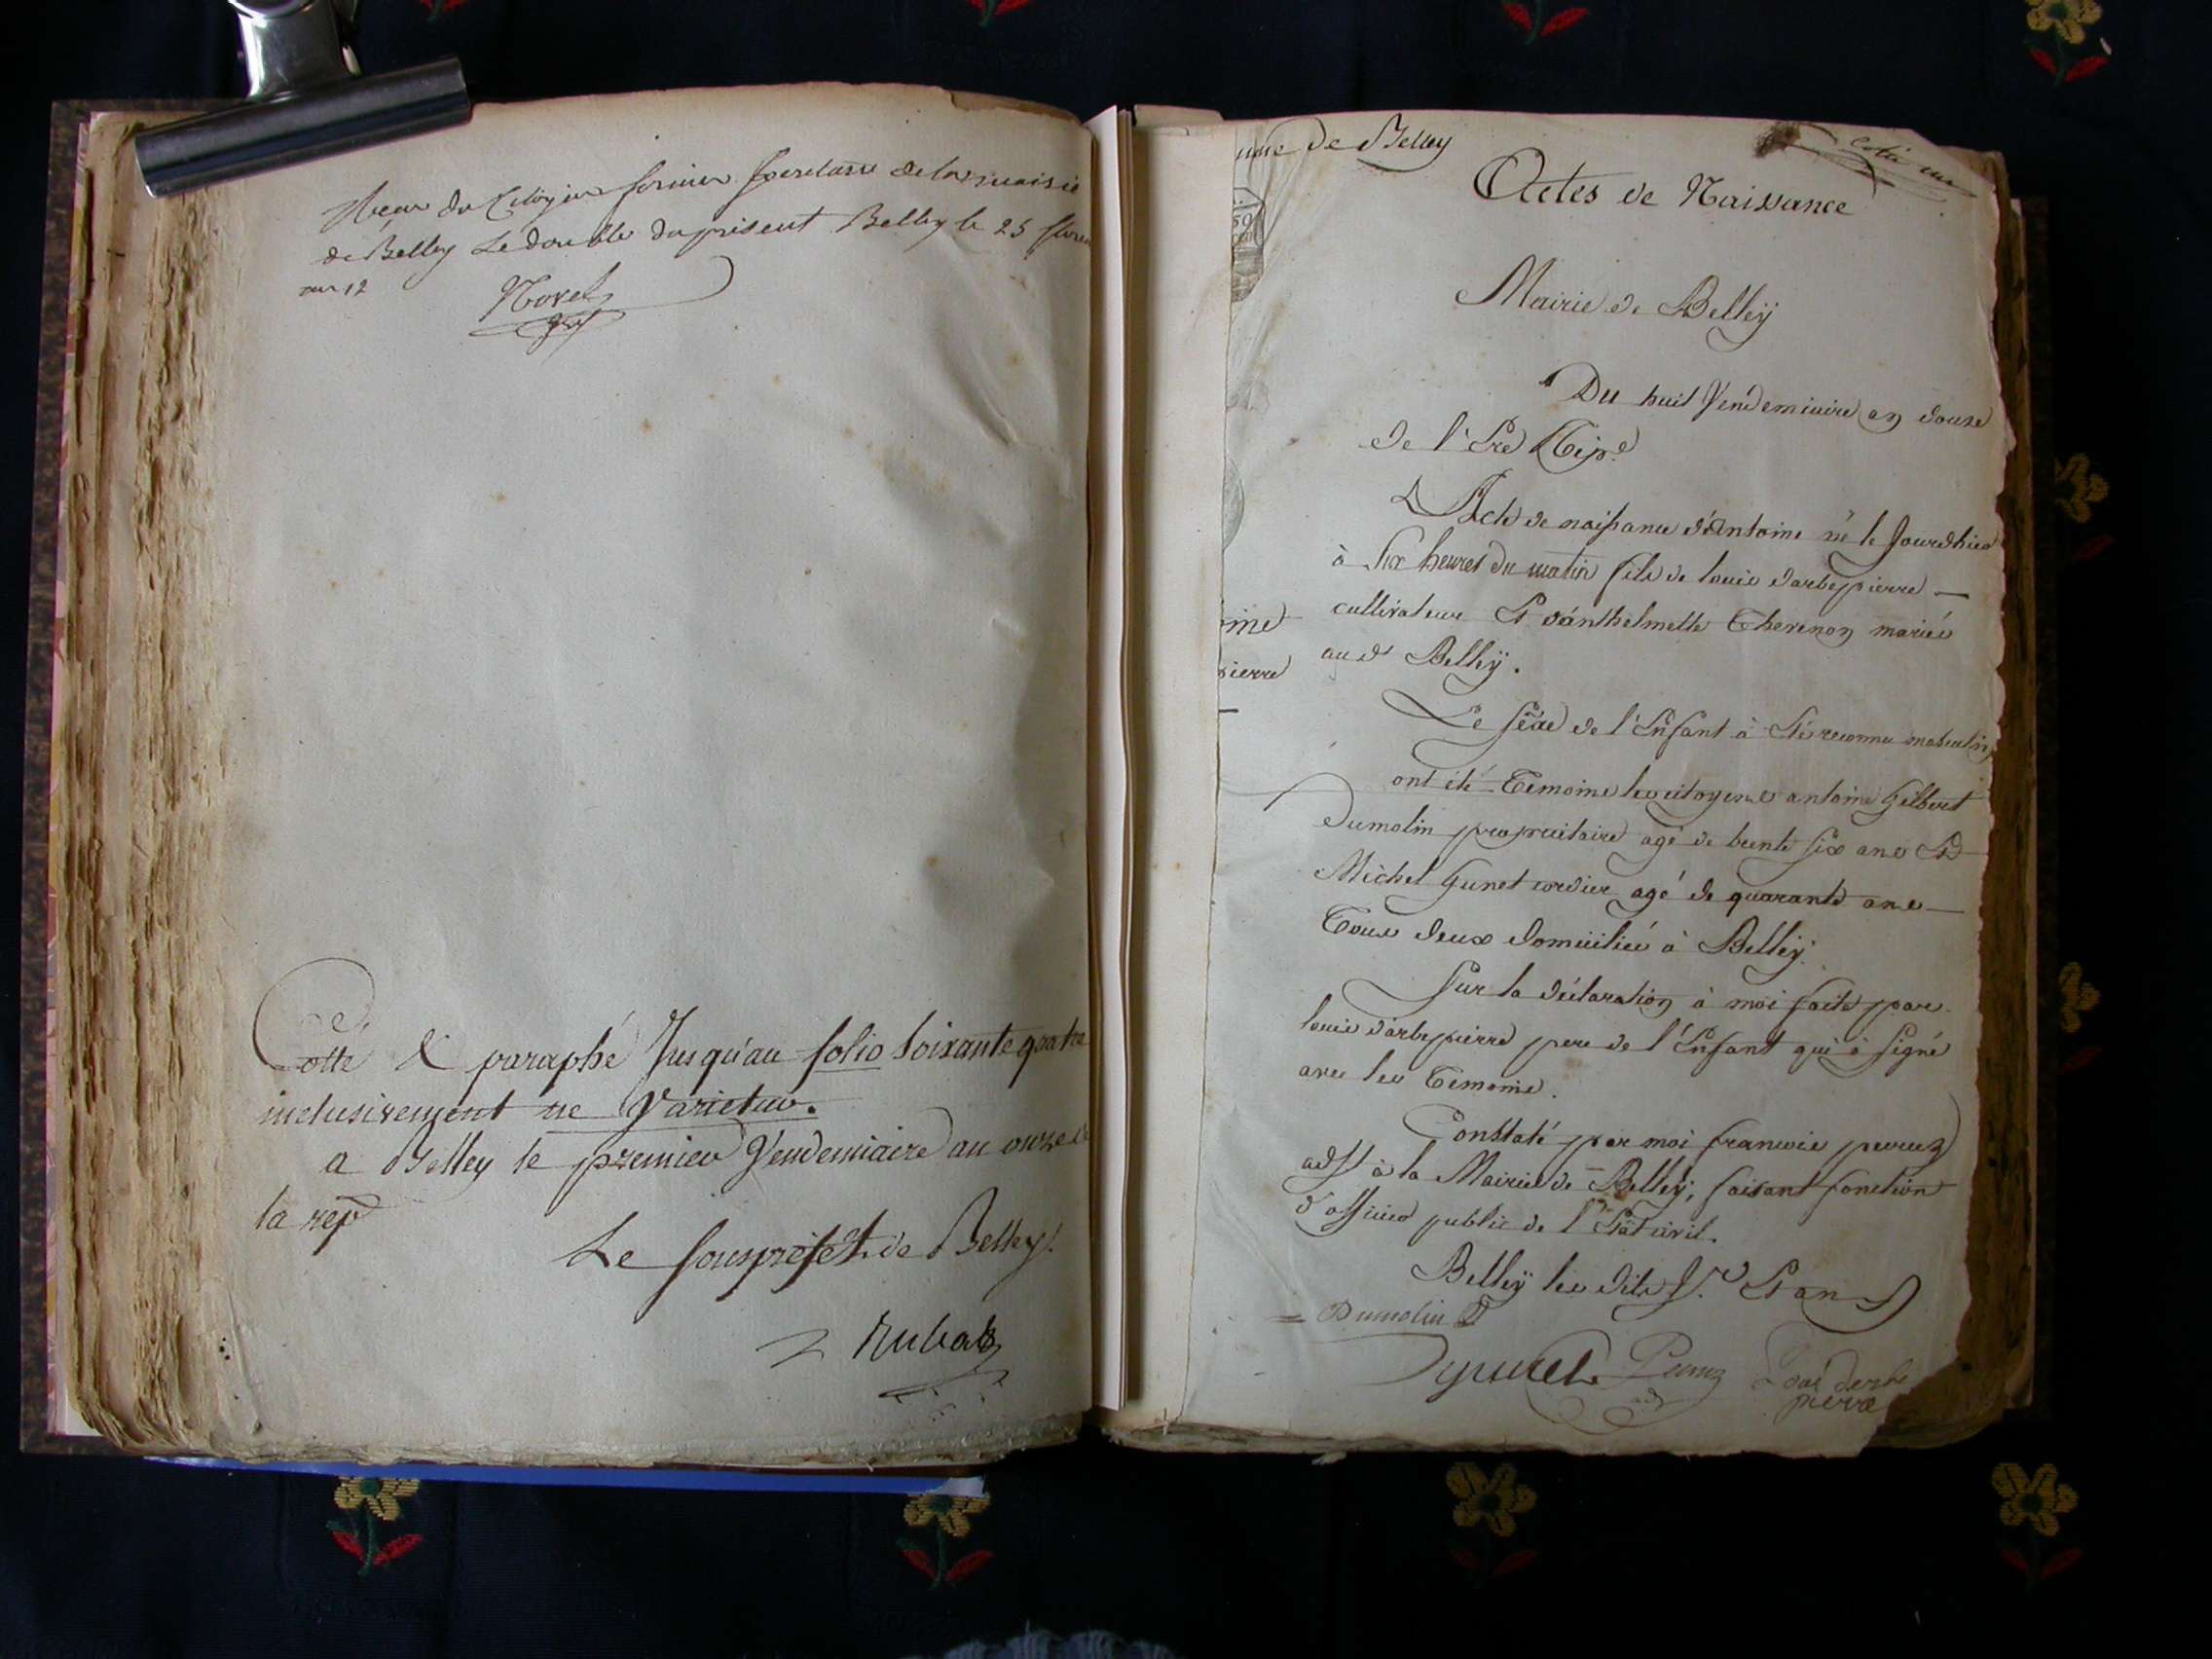 Reçu du Citoyen fornier Secretaire de la mairie
de Belley Le double du present Belley le 25
an 12
Cotte & paraphé Jusqu'au folio Soixante quatre
inclusivement ne Varietur.
a Belley le premier Vendemiaire an onze de
la rep
Le Souspréfet de Belley.
Rubat
de Belley
Cotté un
Actes de Naissance
Mairie de Belleÿ
Du huit Vendemiaire an douze
De l'Ere Rép.e
Acte de naissance d'Antoine né le Jourdhier
à Six heures du matin fils de louis darbepierre —
cultivateur Et d'anthelmette Thevenon mariés
au dt Belleÿ.
pierre
Le Séxe de l'Enfant à Eté reconnu masculin
ont été Temoins les citoyens antoine Gilbert
Dumolin propriétaire agé de trente Six ans Et
Michel Gunet cordier agé de quarante ans —
Tous deux domiciliés à Belleÿ.
Sur la déclaration à moi faite par
louis darbepierre pere de l'Enfant qui à Signé
avec les Temoins.
Constaté par moi francois peruz
adjt à la Mairie de Belleÿ, faisant fonction
d'officier public de l'Etat civil.
Belleÿ les dits Jr Et an
Dumolin
Peruz
darbe
pierre